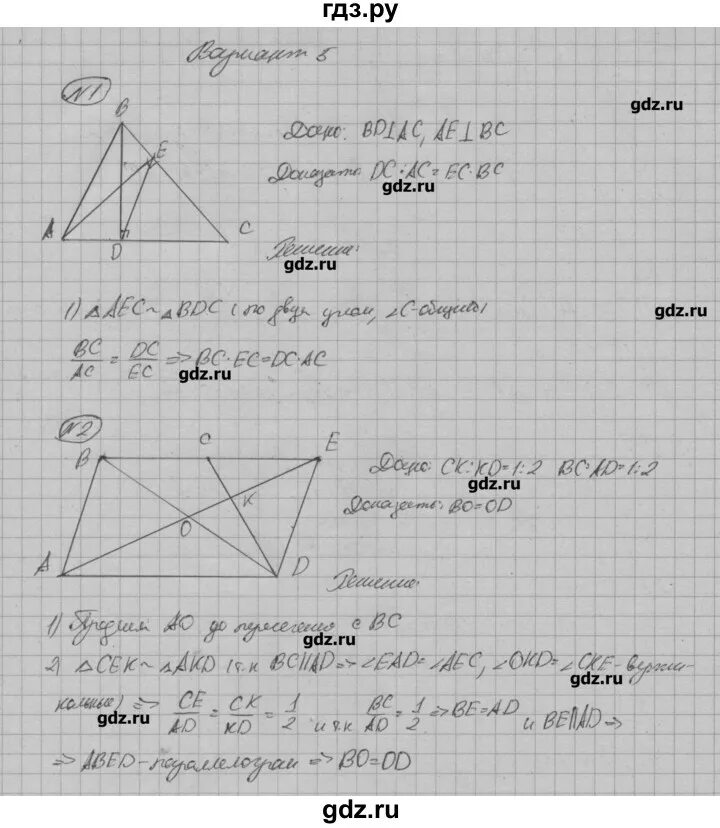 гдз.ру
Вариант 5
№1
B
E
A
D
C
Дано: BD⊥AC, AE⊥BC
gdz.ru
Доказать: DC·AC = EC·BC
gdz.ru
Решение:
gdz.ru
1) △AEC ~ △BDC (по двум углам, ∠C-общий)
gdz.ru
BC/AC = DC/EC => BC·EC = DC·AC
gdz.ru
№2
B
C
E
K
O
A
D
Дано: CK:KD=1:2 BC:AD=1:2
gdz.ru
Доказать: BO=OD
Решение:
1) Продлим AO до пересечения с BC
gdz.ru
2) △CEK ~ △AKD (т.к BC||AD => ∠EAD = ∠AEC, ∠OKD = ∠CKE - верти-
gdz.ru
кальные) => CE/AD = CK/KD = 1/2 и т.к BC/AD = 1/2 => BE=AD и BE||AD =>
gdz.ru
=> ABED - параллелограм => BO=OD
gdz.ru
gdz.ru